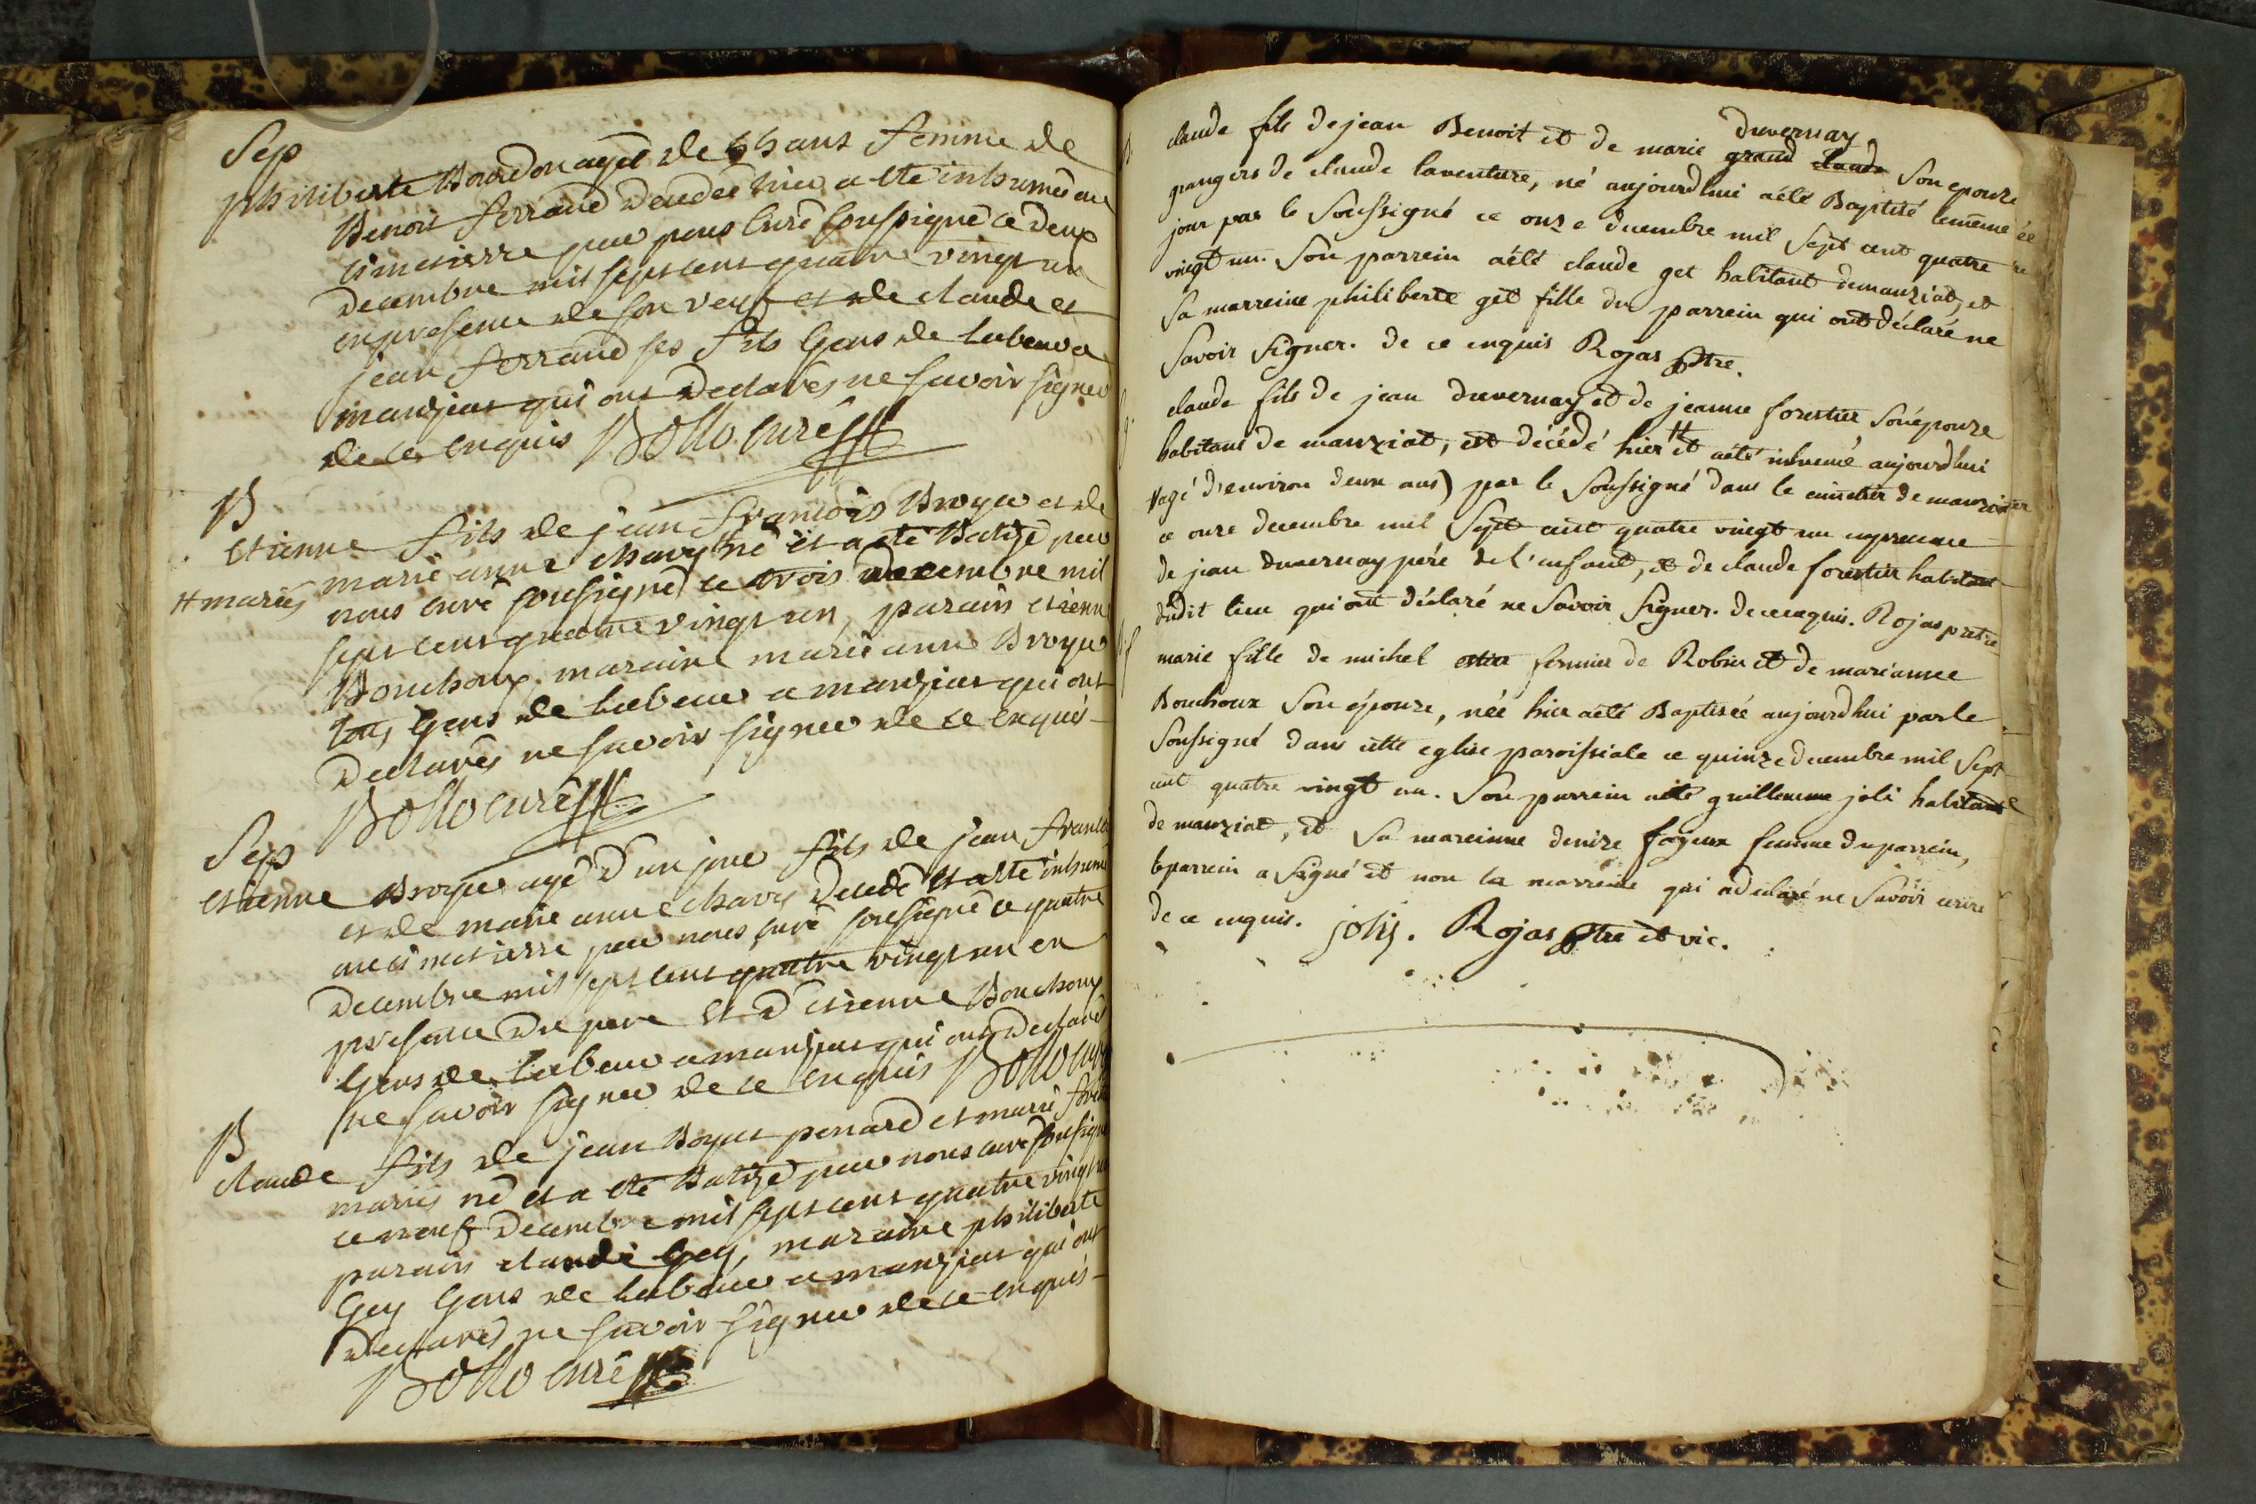 Sep
philiberte Bourdon agée de ans femme de
Benoit ferrand decedée hier a eté inhumée au
cimetierre par nous Curé soussigné ce deux
decembre mil sept cent quatre vingt un
en presence de son veuf et de claude et
jean ferrand ses fils Gens de labeur a
manziat qui ont declarés ne savoir signer
de ce enquis Bollo curé
B
etienne fils de jean françois Broyer et de
marie anne chavy né et a eté Batizé par
# mariés
nous curé soussigné ce trois decembre mil
sept cent quatre vingt un, parain etienne
Bouchoux, maraine marie anne Broyer
tous Gens de labeur a manziat qui ont
declarés ne savoir signer de ce enquis
Bollo curé
Sep
etienne Broyer agé d'un jour fils de jean francoi
et de marie anne chavy decedé et a eté inhumé
au cimetierre par nous curé soussigné ce quatre
decembre mil sept cent quatre vingt un en
présence du pere et d'etienne Bouchoux
Gens de labeur a manziat qui ont declarés
ne savoir signer de ce enquis Bollo curé
B
claude fils de jean Boyat penard et marie
mariés né et a eté Batizé par nous curé soussigné
ce neuf decembre mil sept cent quatre vingt un
parain claude Gey, maraine philiberte
Gey Gens de labeur a manziat qui ont
declarés ne savoir signer de ce enquis
Bollo curé
duvernay
claude fils de jean Benoit et de marie grand claude son epouze
grangers de claude laventure, né aujourdhui a été Baptisé le même
jour par le soussigné ce onze decembre mil sept cent quatre
vingt un. son parrein a été claude get habitant de manziat, et
sa marreine philiberte gêt fille du parrein qui ont déclaré ne
savoir signer. de ce enquis Rojas ptre.
claude fils de jean duvernay et de jeanne forestier son épouze
habitans de manziat, est décédé hier # et a été inhumé aujourdhui
# agé d'environ deux ans) par le soussigné dans le cimetier de manziat
ce onze decembre mil sept cent quatre vingt un en presence
de jean duvernay père de l'enfant, et de claude forestier habitant
dudit lieu qui ont déclaré ne savoir signer. de ce enquis. Rojas pretre
marie fille de michel fermier de Robin et de marianne
Bouchoux son épouze, née hier a été Baptisée aujourdhui par le
soussigné dans cette eglise paroissiale ce quinze decembre mil sept
cent quatre vingt un. son parrein a été guillaume joli habitant
de manziat, et sa mareinne denize fayeux femme du parrein,
le parrein a signé et non la marreine qui a declaré ne savoir ecrire
de ce enquis. joly. Rojas ptre et vic.